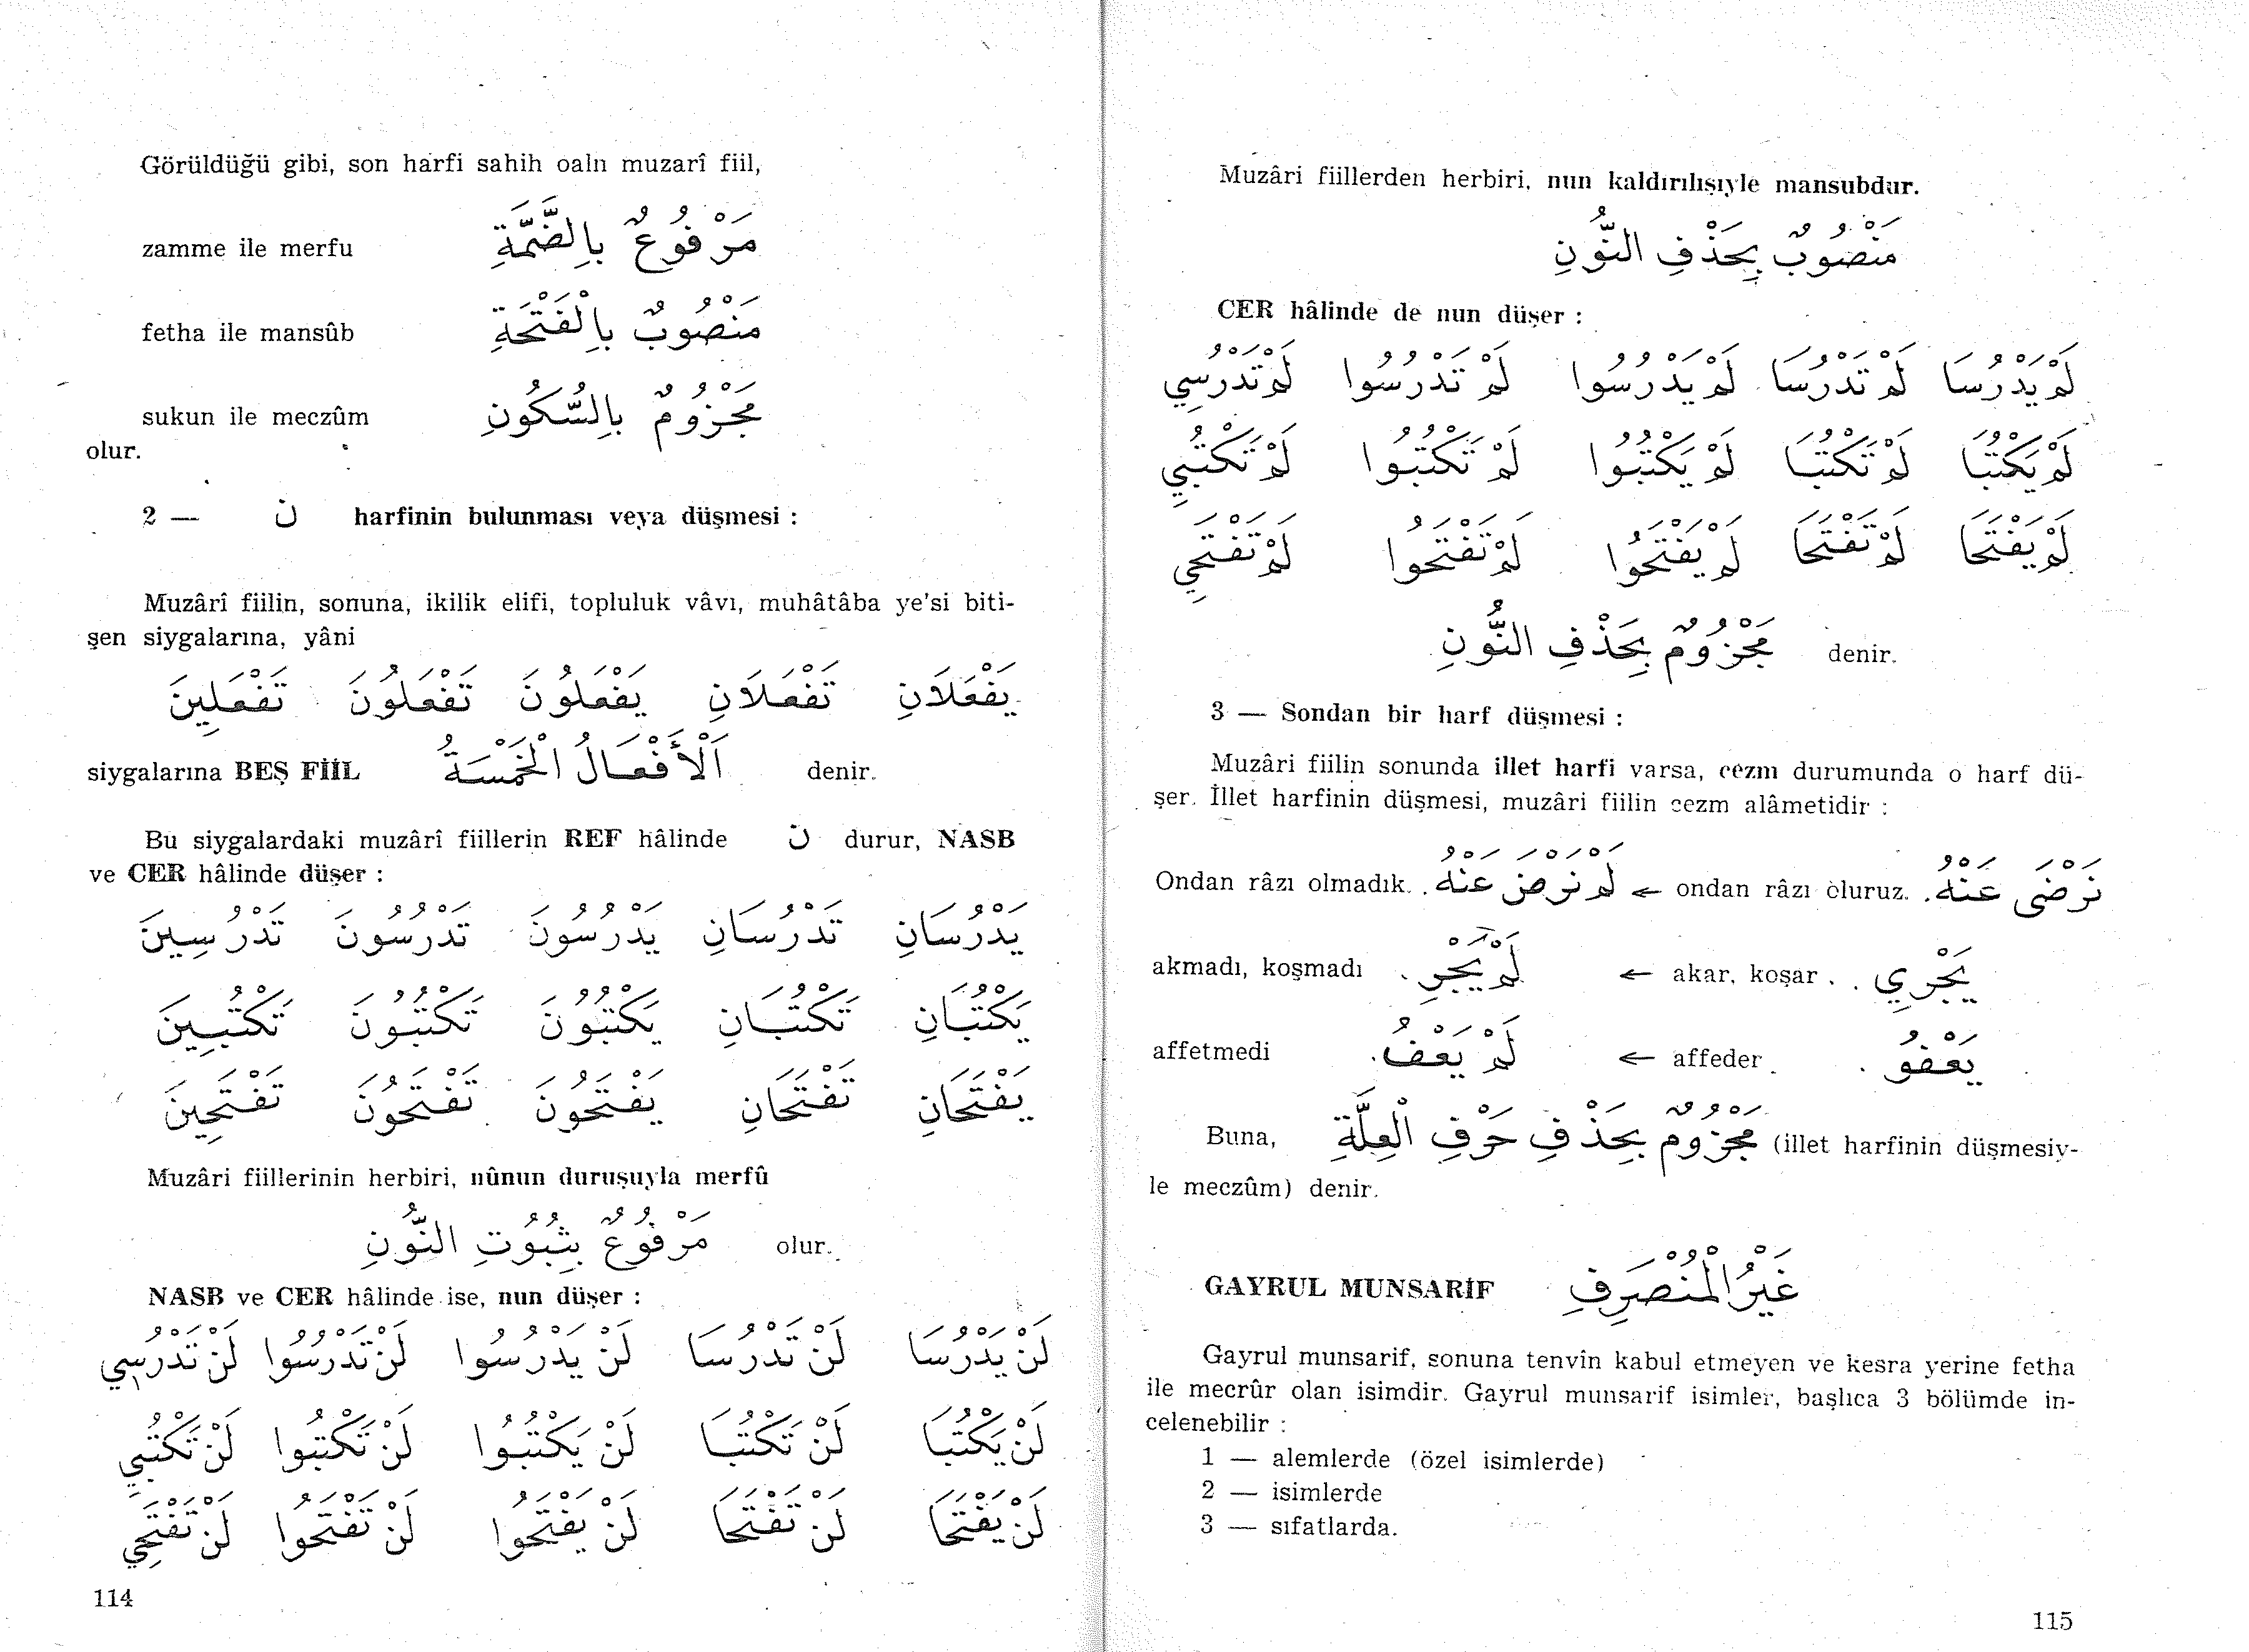 Görüldüğü gibi, son harfi sahih oaln muzarî fiil,
zamme ile merfu مَرْفُوعٌ بِالضَّمَّةِ
fetha ile mansûb مَنْصُوبٌ بِالْفَتْحَةِ
sukun ile meczûm مَجْزُومٌ بِالسُّكُونِ
olur.
2 — ن harfinin bulunması veya düşmesi :
Muzârî fiilin, sonuna, ikilik elifi, topluluk vâvı, muhâtâba ye'si biti-
şen siygalarına, yâni
يَفْعَلَانِ تَفْعَلَانِ يَفْعَلُونَ تَفْعَلُونَ تَفْعَلِينَ
siygalarına BEŞ FİİL اَلْأَفْعَالُ الْخَمْسَةُ denir.
Bu siygalardaki muzârî fiillerin REF hâlinde ن durur, NASB
ve CER hâlinde düşer :
يَدْرُسَانِ تَدْرُسَانِ يَدْرُسُونَ تَدْرُسُونَ تَدْرُسِينَ
يَكْتُبَانِ تَكْتُبَانِ يَكْتُبُونَ تَكْتُبُونَ تَكْتُبِينَ
يَفْتَحَانِ تَفْتَحَانِ يَفْتَحُونَ تَفْتَحُونَ تَفْتَحِينَ
Muzâri fiillerinin herbiri, nûnun duruşuyla merfû
مَرْفُوعٌ بِثُبُوتِ النُّونِ olur.
NASB ve CER hâlinde ise, nun düşer :
لَنْ يَدْرُسَا لَنْ تَدْرُسَا لَنْ يَدْرُسُوا لَنْ تَدْرُسُوا لَنْ تَدْرُسِي
لَنْ يَكْتُبَا لَنْ تَكْتُبَا لَنْ يَكْتُبُوا لَنْ تَكْتُبُوا لَنْ تَكْتُبِي
لَنْ يَفْتَحَا لَنْ تَفْتَحَا لَنْ يَفْتَحُوا لَنْ تَفْتَحُوا لَنْ تَفْتَحِي
114
Muzâri fiillerden herbiri, nun kaldırılışıyle mansubdur.
مَنْصُوبٌ بِحَذْفِ النُّونِ
CER hâlinde de nun düşer :
لَمْ يَدْرُسَا لَمْ تَدْرُسَا لَمْ يَدْرُسُوا لَمْ تَدْرُسُوا لَمْ تَدْرُسِي
لَمْ يَكْتُبَا لَمْ تَكْتُبَا لَمْ يَكْتُبُوا لَمْ تَكْتُبُوا لَمْ تَكْتُبِي
لَمْ يَفْتَحَا لَمْ تَفْتَحَا لَمْ يَفْتَحُوا لَمْ تَفْتَحُوا لَمْ تَفْتَحِي
مَجْزُومٌ بِحَذْفِ النُّونِ denir.
3 — Sondan bir harf düşmesi :
Muzâri fiilin sonunda illet harfi varsa, cezm durumunda o harf dü-
şer. İllet harfinin düşmesi, muzâri fiilin cezm alâmetidir :
Ondan râzı olmadık. لَمْ نَرْضَ عَنْهُ. ← ondan râzı oluruz. نَرْضَى عَنْهُ.
akmadı, koşmadı لَمْ يَجْرِ. ← akar, koşar . يَجْرِي .
affetmedi لَمْ يَعْفُ. ← affeder . يَعْفُو .
Buna, مَجْزُومٌ بِحَذْفِ حَرْفِ الْعِلَّةِ (illet harfinin düşmesiy-
le meczûm) denir.
GAYRUL MUNSARİF غَيْرُ الْمُنْصَرِفِ
Gayrul munsarif, sonuna tenvîn kabul etmeyen ve kesra yerine fetha
ile mecrûr olan isimdir. Gayrul munsarif isimler, başlıca 3 bölümde in-
celenebilir :
1 — alemlerde (özel isimlerde)
2 — isimlerde
3 — sıfatlarda.
115